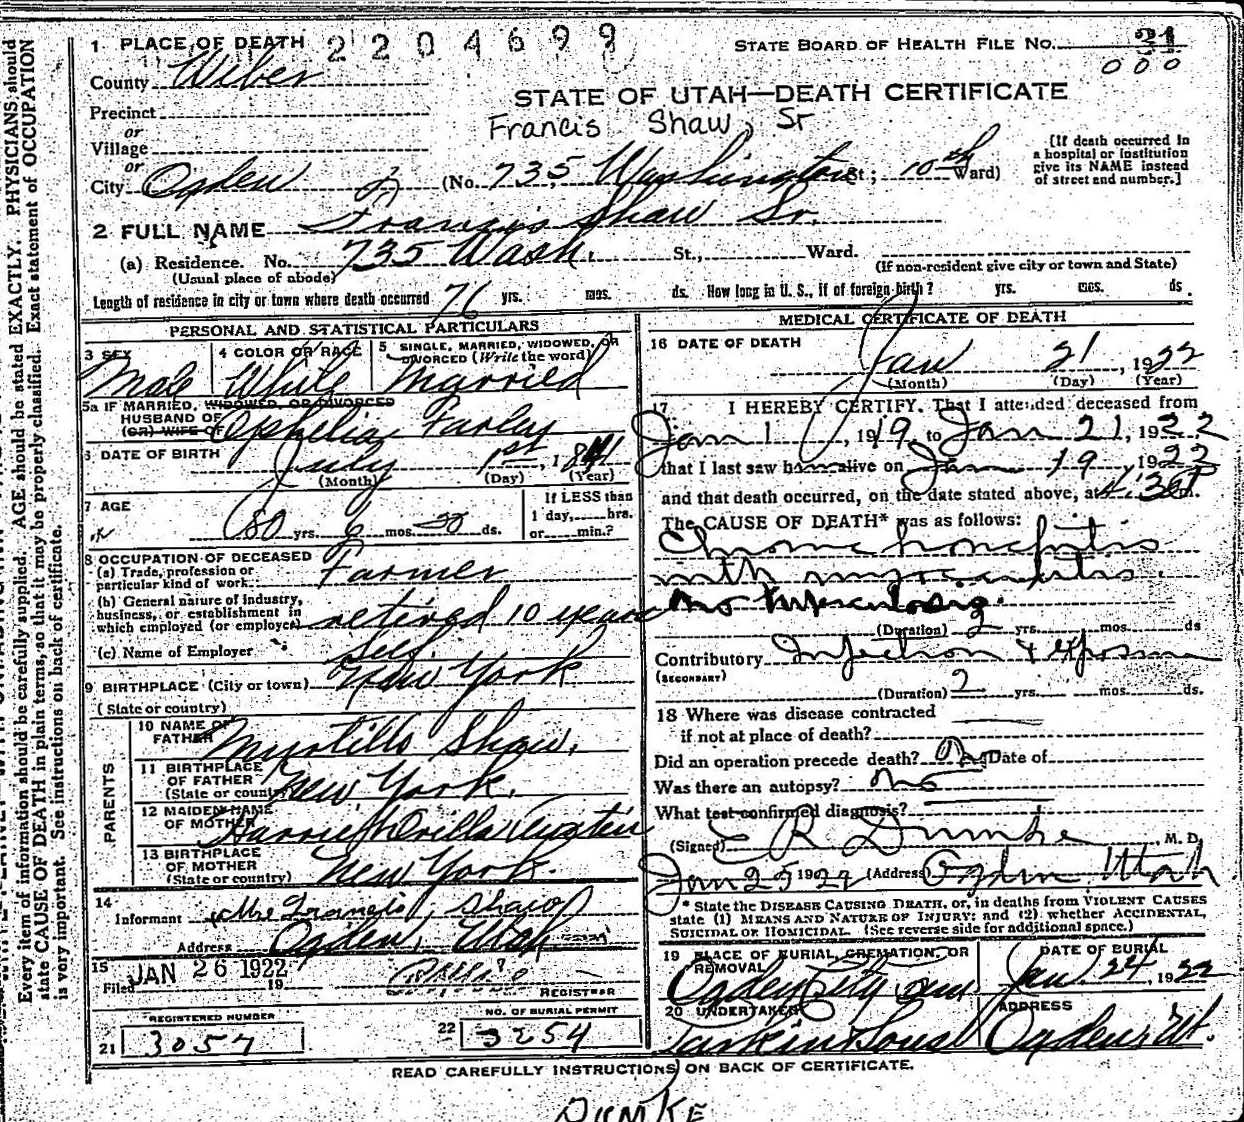 1 PLACE OF DEATH 2204699 STATE BOARD OF HEALTH FILE NO. 21
000
County Weber
STATE OF UTAH—DEATH CERTIFICATE
Precinct
Francis Shaw, Sr
or
Village
or
City Ogden (No. 735, Washington St; 10th Ward)
[If death occurred in
a hospital or institution
give its NAME instead
of street and number.]
2 FULL NAME Francis Shaw Sr.
(a) Residence. No. 735 Wash. St., Ward.
(Usual place of abode) (If non-resident give city or town and State)
Length of residence in city or town where death occurred 76 yrs. mos. ds. How long in U. S., if of foreign birth? yrs. mos. ds.
PERSONAL AND STATISTICAL PARTICULARS
3 SEX Male
4 COLOR OR RACE White
5 SINGLE, MARRIED, WIDOWED, OR
DIVORCED (Write the word)
Married
5a IF MARRIED, WIDOWED, OR DIVORCED
HUSBAND OF
(OR) WIFE OF Ophelia Farley
6 DATE OF BIRTH July 1st, 1841
(Month) (Day) (Year)
7 AGE 80 yrs. 6 mos. 20 ds.
If LESS than
1 day, hrs.
or min.?
8 OCCUPATION OF DECEASED
(a) Trade, profession or
particular kind of work Farmer
(b) General nature of industry,
business, or establishment in
which employed (or employer) retired 10 years
(c) Name of Employer Self.
9 BIRTHPLACE (City or town) New York
(State or country)
PARENTS
10 NAME OF
FATHER Myrtillo Shaw,
11 BIRTHPLACE
OF FATHER
(State or country) New York.
12 MAIDEN NAME
OF MOTHER Harriet Orilla Austin
13 BIRTHPLACE
OF MOTHER
(State or country) New York.
14
Informant Mrs Francis Shaw
Address Ogden, Utah
15
Filed JAN 26 1922 19
REGISTRAR
REGISTERED NUMBER
21 3057
NO. OF BURIAL PERMIT
22 3254
MEDICAL CERTIFICATE OF DEATH
16 DATE OF DEATH
Jan 21, 1922
(Month) (Day) (Year)
17 I HEREBY CERTIFY, That I attended deceased from
Jan 1, 1919, to Jan 21, 1922
that I last saw him alive on Jan 19, 1922
and that death occurred, on the date stated above, at 4:30 P m.
The CAUSE OF DEATH* was as follows:
Chronic bronchitis
with myocarditis.
no tuberculosis.
(Duration) 2 yrs. mos. ds
Contributory Infection & exposure
(SECONDARY)
(Duration) 2 yrs. mos. ds.
18 Where was disease contracted
if not at place of death?
Did an operation precede death? No Date of
Was there an autopsy? no
What test confirmed diagnosis?
(Signed) E R Dumke, M. D.
Jan 25 1922 (Address) Ogden Utah
* State the DISEASE CAUSING DEATH, or, in deaths from VIOLENT CAUSES
state (1) MEANS AND NATURE OF INJURY; and (2) whether ACCIDENTAL,
SUICIDAL OR HOMICIDAL. (See reverse side for additional space.)
19 PLACE OF BURIAL, CREMATION, OR
REMOVAL
Ogden City Cem
DATE OF BURIAL
Jan. 24, 1922
20 UNDERTAKER
Larkin & Sons
ADDRESS
Ogden Ut.
READ CAREFULLY INSTRUCTIONS ON BACK OF CERTIFICATE.
DUMKE
Every item of information should be carefully supplied. AGE should be stated EXACTLY. PHYSICIANS should
state CAUSE OF DEATH in plain terms, so that it may be properly classified. Exact statement of OCCUPATION
is very important. See instructions on back of certificate.